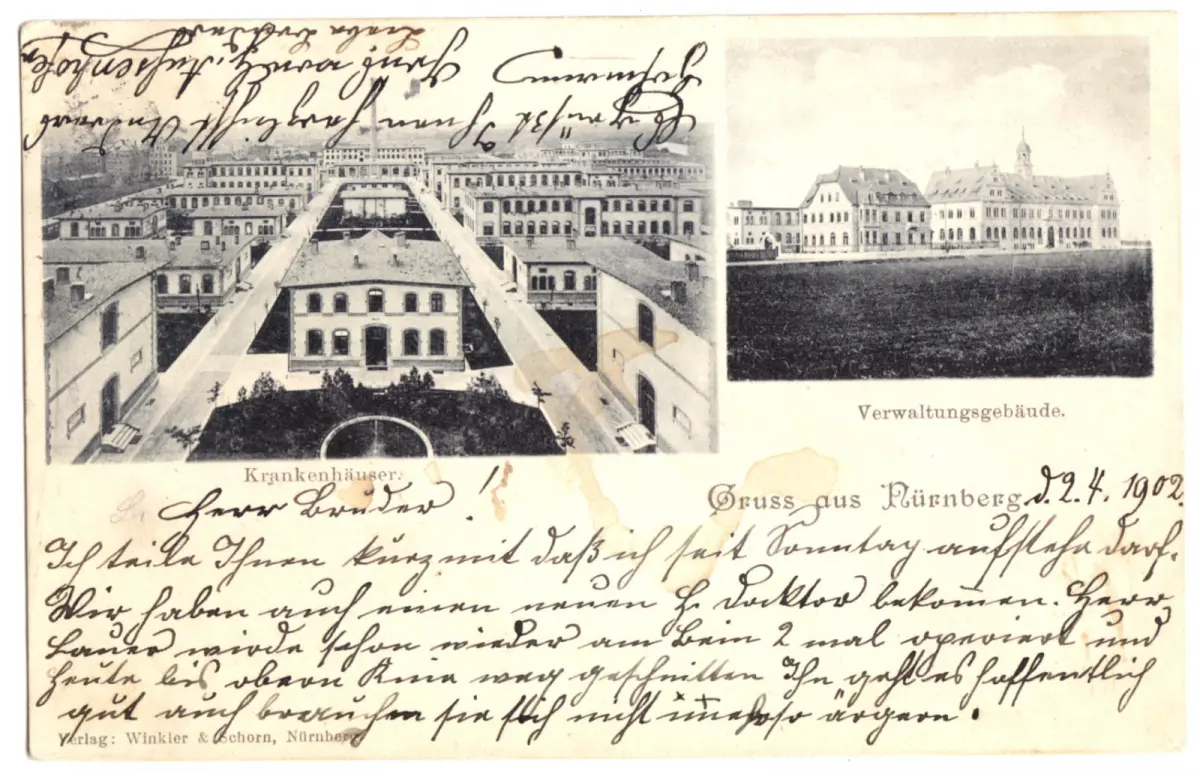 Krankenhäuser.
Verwaltungsgebäude.
Gruss aus Nürnberg. d. 2. 4. 1902.
Herr Bruder!
Ich teile Ihnen kurz mit daß ich seit Sonntag aufstehe darf.
Wir haben auch einen neuen H. Docktor bekommen. Herr
Bauer wirde schon wieder am Bein 2 mal operiert und
heute bis obern Knie weg geschnitten Ihn geht es hoffentlich
gut auch brauchen sie sich nicht so ärgern.
Verlag: Winkler & Schorn, Nürnberg.
Grüßt Ihnen herzlichst
Hermann